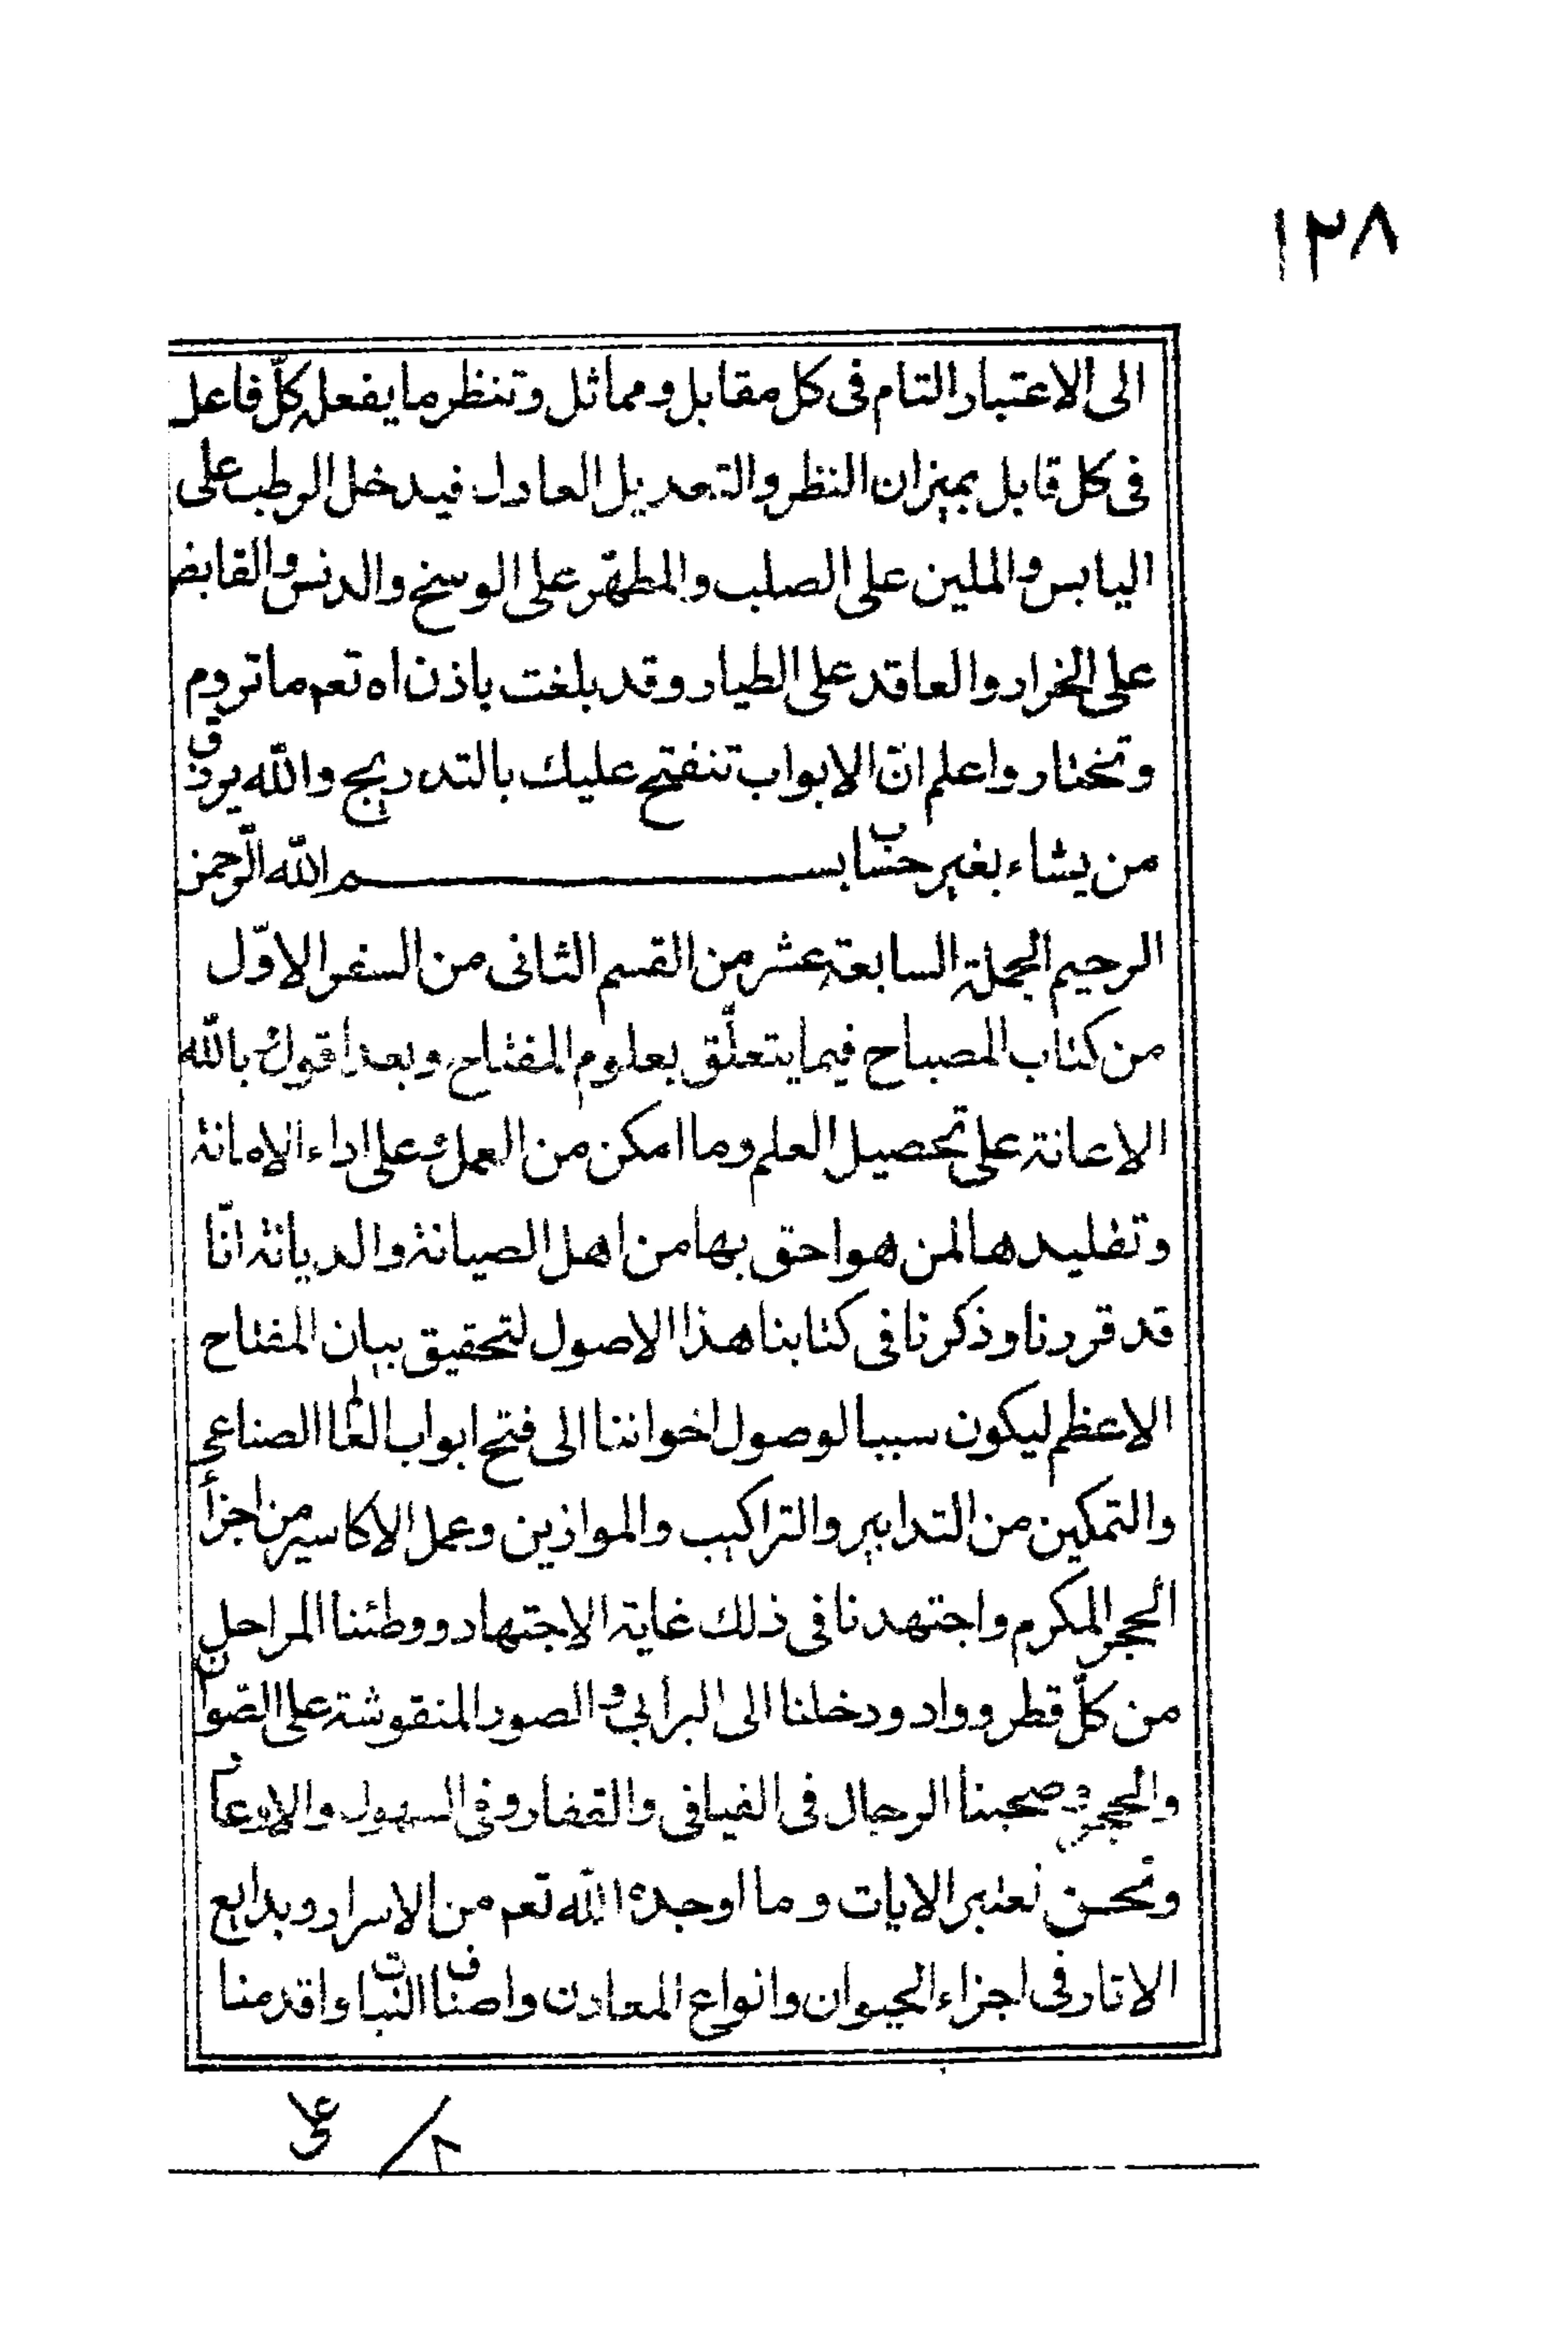 ١٢٨
الى الاعتبار التام فى كل مقابل ومماثل وتنظر ما يفعله كلّ فاعل
فى كل قابل بميزان النظر والتعديل العادل فيدخل الرطب على
اليابس والملين على الصلب والمطهّر على الوسخ والدنس والقابض
على الخرار والعاقد على الطيار وقد بلغت باذن اه تعم ما تروم
وتختار واعلم انّ الابواب تنفتح عليك بالتدريج والله يرزق
من يشاء بغير حساب بسم الله الرّحمن
الرحيم الجملة السابعة عشر من القسم الثانى من السفر الاوّل
من كتاب المصباح فيما يتعلّق بعلوم المفتاح وبعد اقول بالله
الاعانة على تحصيل العلم وما امكن من العمل وعلى اداء الامانة
وتقليدها لمن هو احق بها من اهل الصيانة والديانة انّا
قد قررنا وذكرنا فى كتابنا هذا الاصول لتحقيق بيان المفتاح
الاعظم ليكون سببا لوصول اخواننا الى فتح ابواب العالم الصناعى
والتمكين من التدابير والتراكيب والموازين وعمل الاكاسير من اجزأ
الحجر المكرم واجتهدنا فى ذلك غاية الاجتهاد ووطئنا المراحل
من كلّ قطر وواد ودخلنا الى البرابي والصور المنقوشة على الصّوان
والحجر وصحبنا الرجال فى الفيافى والقفار وفى السهول والاوعار
ونحن نعتبر الايات وما اوجده الله تعم من الاسرار وبدايع
الاثار فى اجزاء الحيوان وانواع المعادن واصناف النبات واقدمنا
٢
على